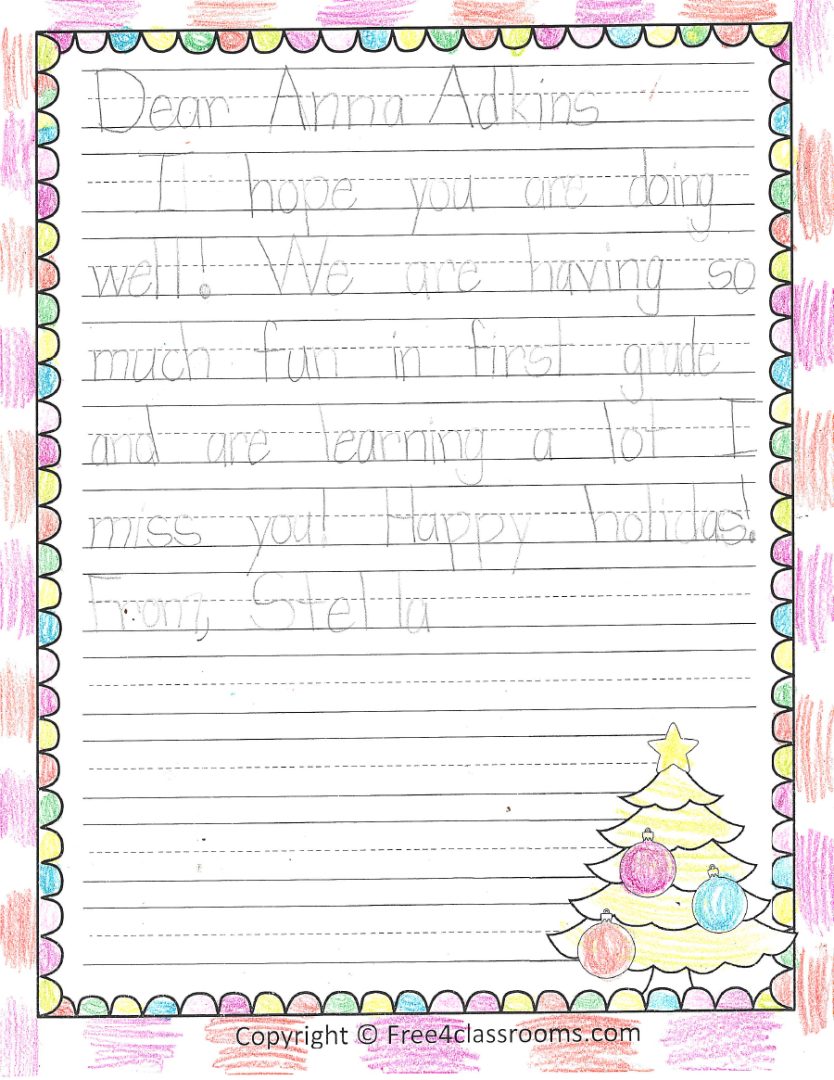 Dear Anna Adkins
I hope you are doing
well! We are having so
much fun in first grade
and are learning a lot I
miss you! Happy holidas!
From, Stella
Copyright © Free4classrooms.com